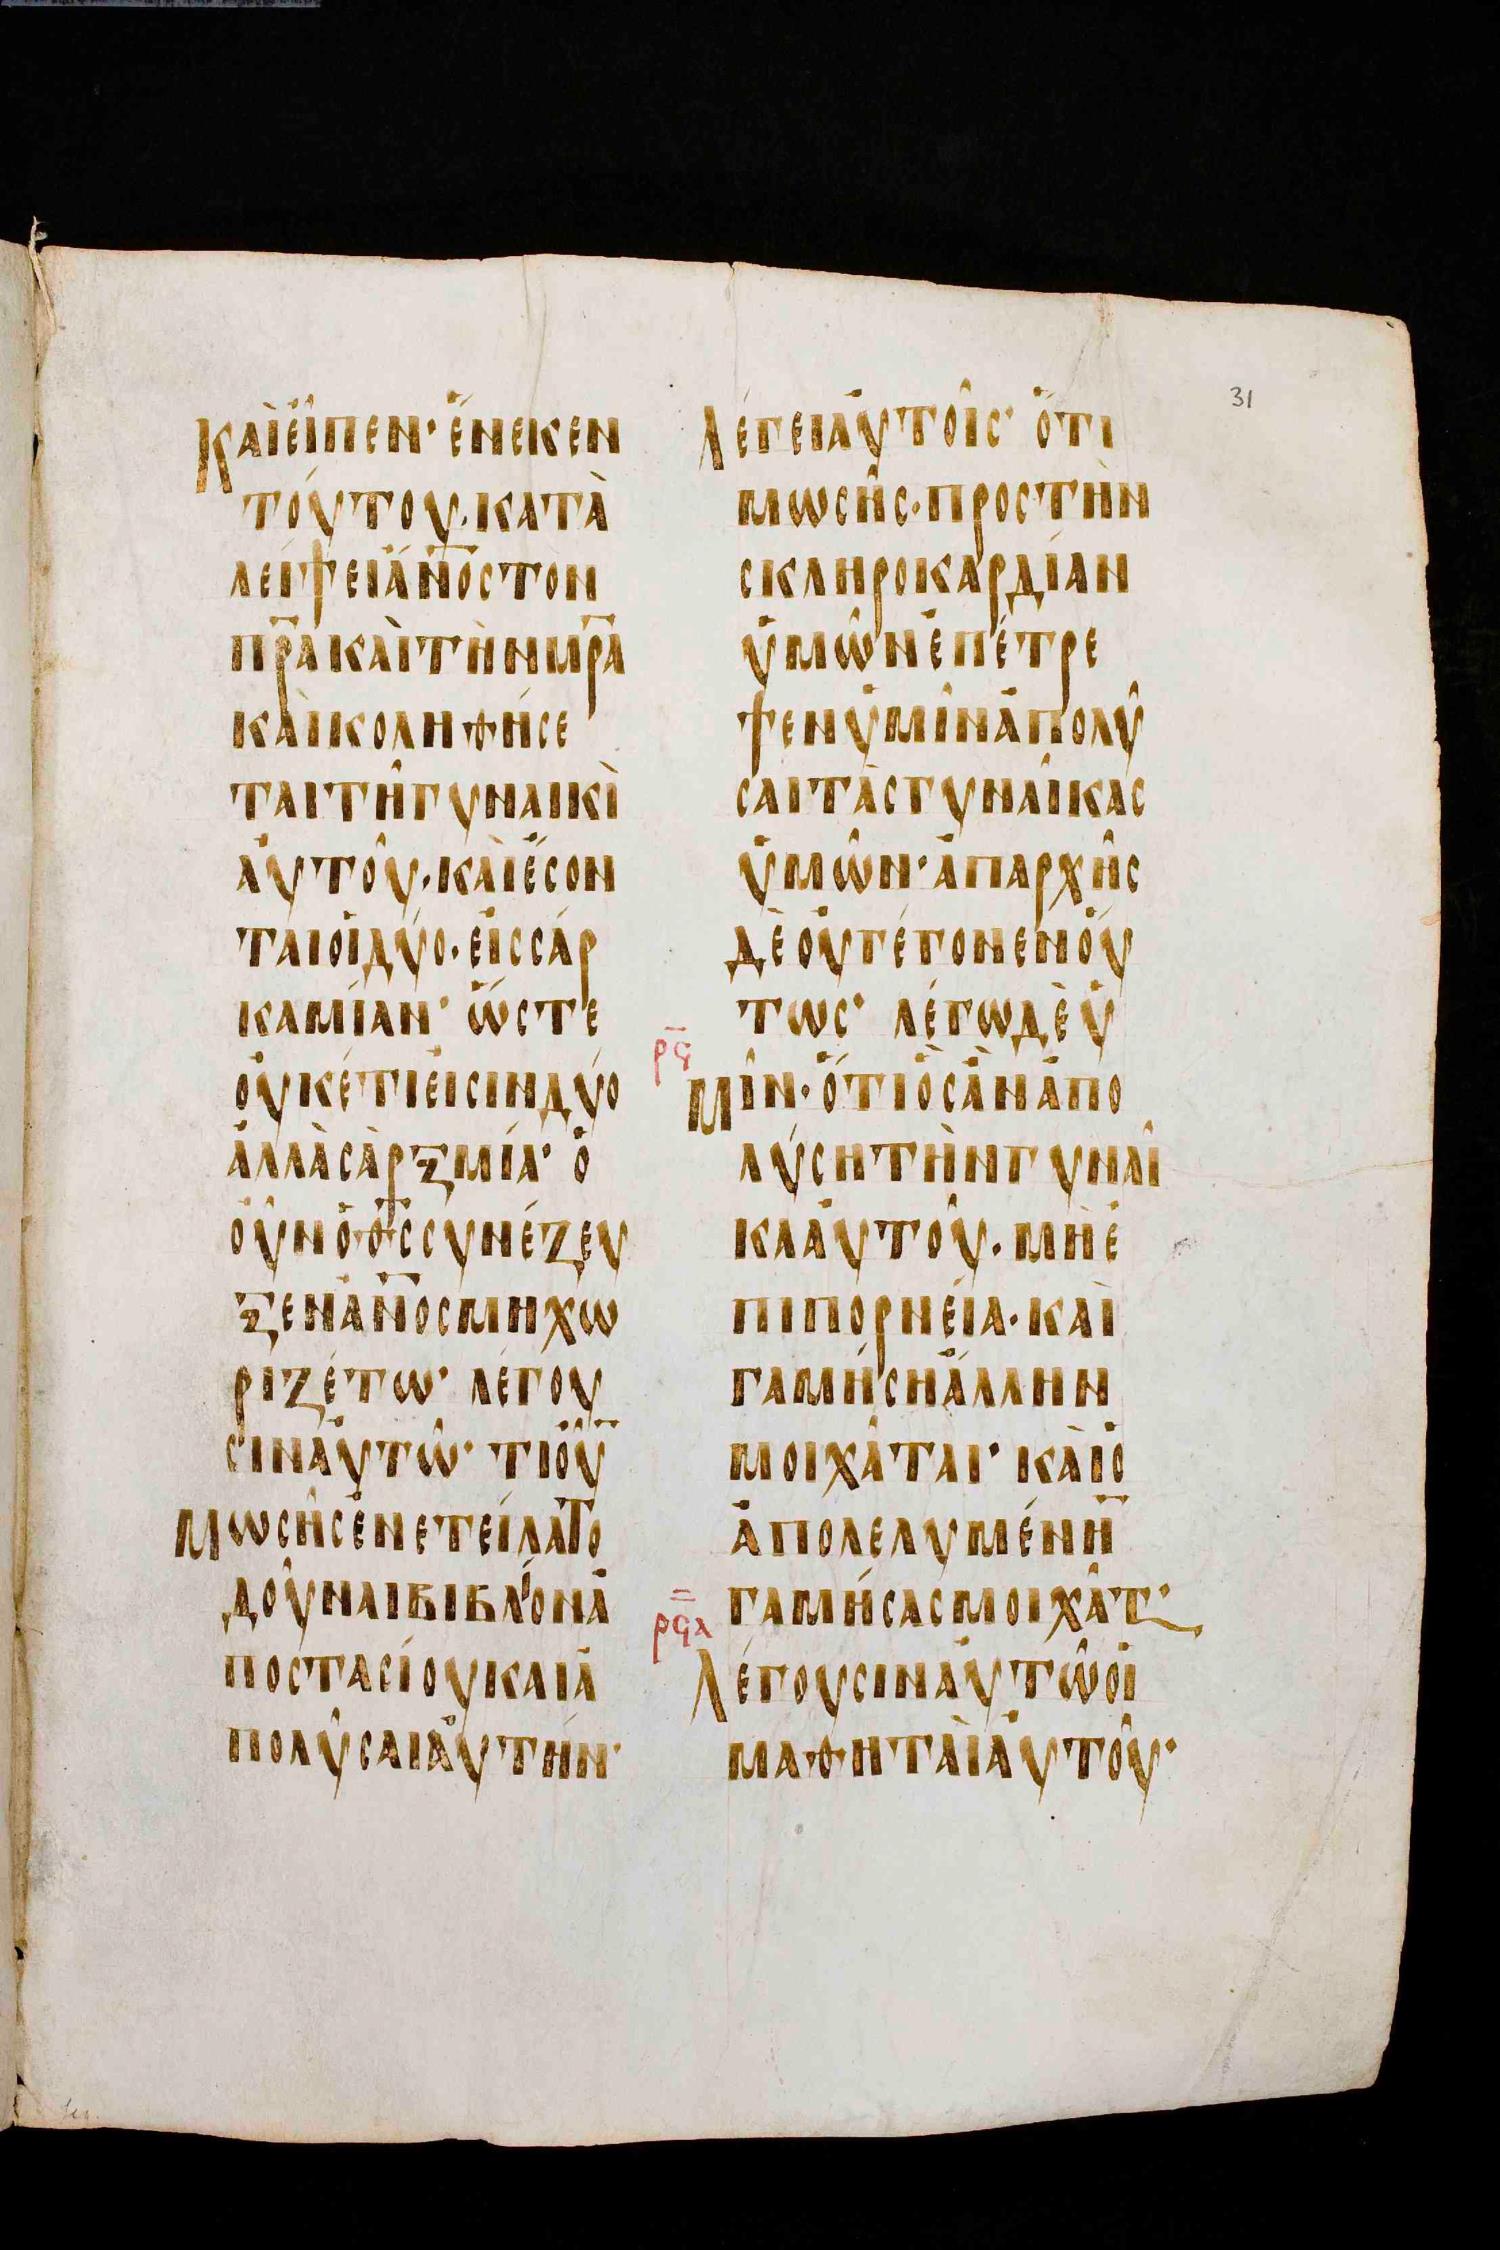 31
Κ̓αὶεἶπεν· ἕνεκεν
τούτου, κατὰ
λείψειἄν̅ο̅ς̅τὸν
πρ̅ακαὶτὴνμρ̅α
καὶκοληθήσε
ταιτῆγυναικὶ
ἀυτοῦ, καὶἔσον
ταιοἱδύο. εἰςσάρ
καμίαν· ὥστε
οὐκέτιεἰσὶνδύο
ἀλλὰσὰρξμία· ὁ
οὖνὁθ̅ςσυνέζευ
ξενἄν̅ο̅ςμηχω
ριζέτω· λέγου
σιναὐτῶ· τιοὖ̅
Μωσῆςἐνετείλατο
δοῦναιβιβλίονἀ
ποστασίουκαιἀ
πολῦσαιαὐτήν·
Λέγειαὐτοῖς· ὅτι
μωσῆς. προςτὴν
σκληροκαρδίαν
ὑμῶνἐπέτρε
ψενὑμῖνἀπολῦ
σαιτὰςγυναῖκας
ὑμῶν· ἀπαρχῆς
δὲοὐγέγονενοὕ
τως· λέγωδὲὑ
ρϙ
Μῖν· ὅτιὃςἂνἀπο
λύσητὴνγυναῖ
κααὐτοῦ. μὴἐ
πιπορνεία. καὶ
γαμήσηἄλλην
μοιχᾶται· καὶὁ
ἀπολελυμένη̅
γαμήσαςμοιχᾶτ·
ρϙα
Λέγουσιναὐτῶοἱ
μαθηταὶαὐτοῦ·